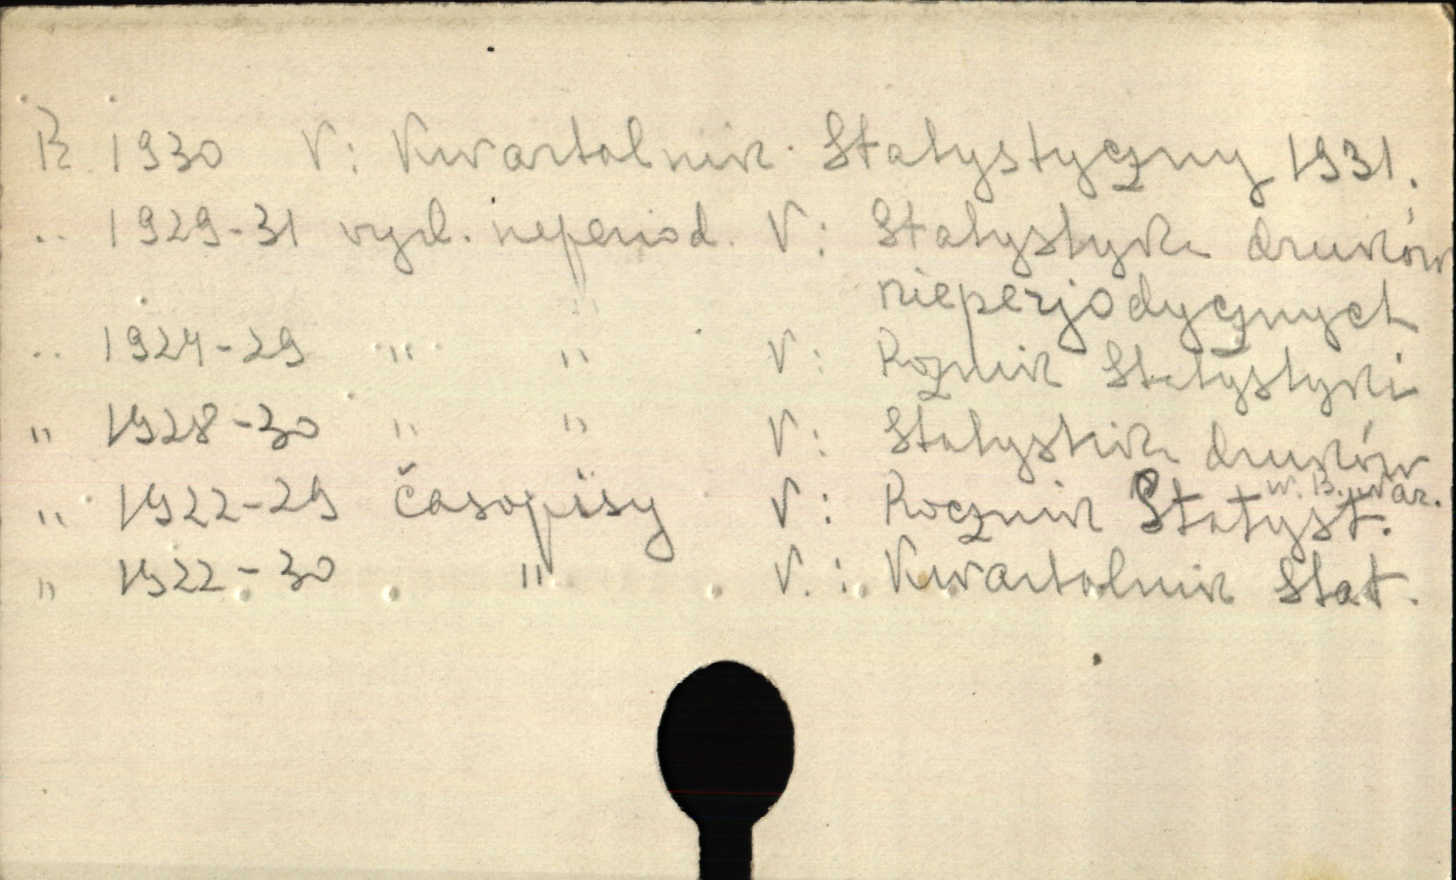 R. 1930 V: Kwartalnik Statystyczny 1931.
" 1929-31 vyd. neperiod. V: Statystyka druków
" nieperjodycznych
" 1924-29 " " V: Roznik Statystyki
" 1928-30 " " V: Statystik druków
w. B. war.
" 1922-29 časopisy V: Rocznik Statyst.
" 1922-30 " V.: Kwartalnik Stat.